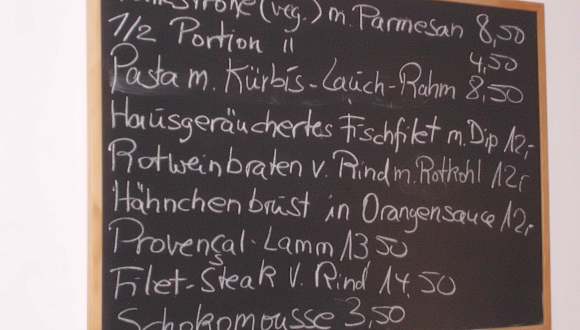 (veg.) m. Parmesan 8,50
1/2 Portion " 4,50
Pasta m. Kürbis-Lauch-Rahm 8,50
Hausgeräuchertes Fischfilet m. Dip 12,-
Rotweinbraten v. Rind m. Rotkohl 12,-
Hähnchenbrust in Orangensauce 12,-
Provençal-Lamm 13 50
Filet-Steak v. Rind 14,50
Schokomousse 3,50